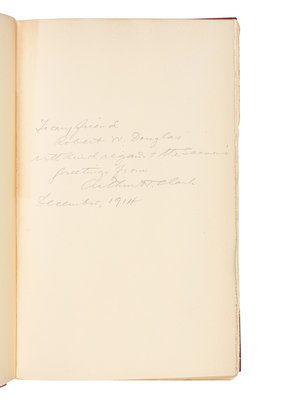 To my friend
Robert W. Douglas
with kind regards & the season's
greetings from
Arthur H. Clark
December, 1914